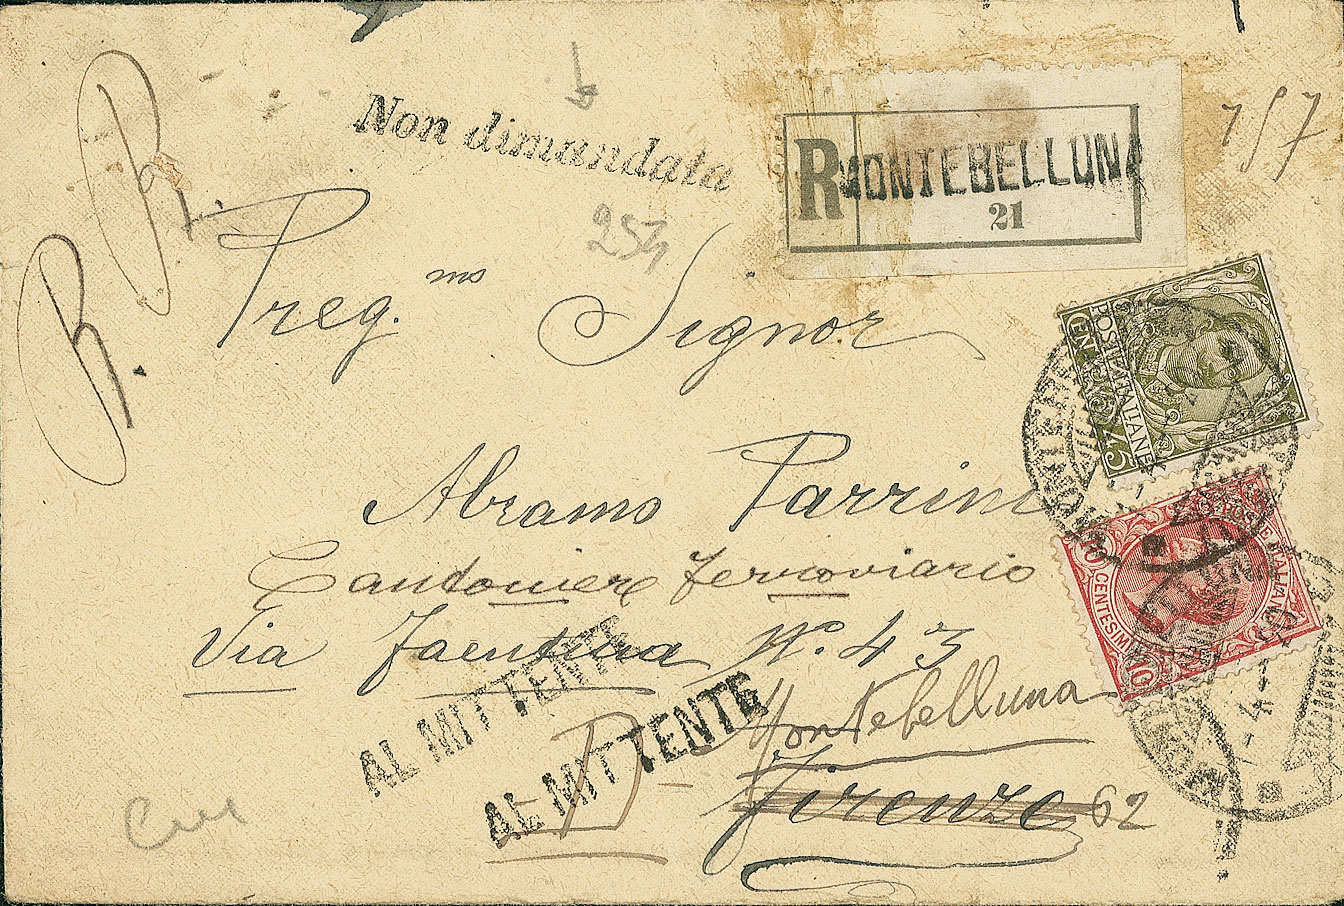 B. R.
Non dimandata
R MONTEBELLUNA
21
197
254
Preg.mo Signor
POSTE ITALIANE
CENT. 45
Abramo Parrini
Cantoniere ferroviario
Via Faentina No. 43
POSTE ITALIANE
10 CENTESIMI 10
AL MITTENTE
AL MITTENTE
Montebelluna
Firenze 62